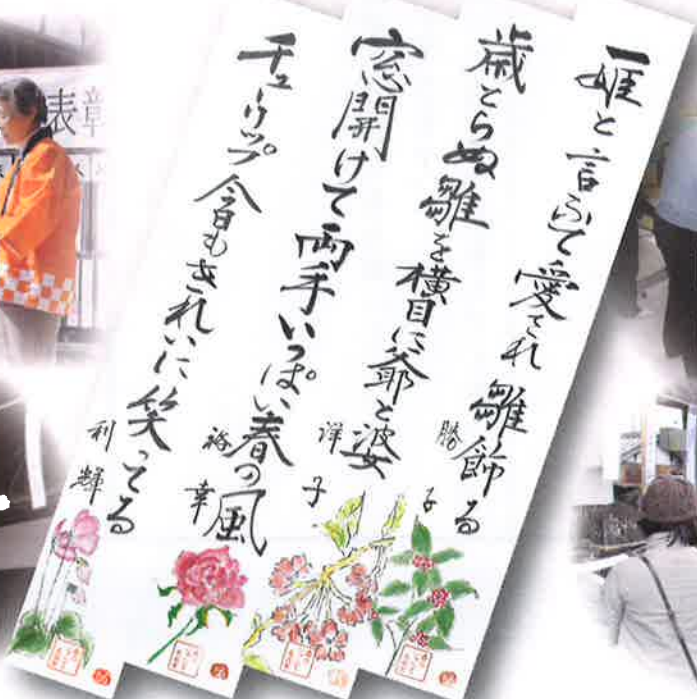 一姫と言ふて愛され雛飾る
歳とらぬ雛を横目に爺と婆
窓開けて両手いっぱい春の風
チューリップ今日もきれいに笑ってる
利輝
表彰